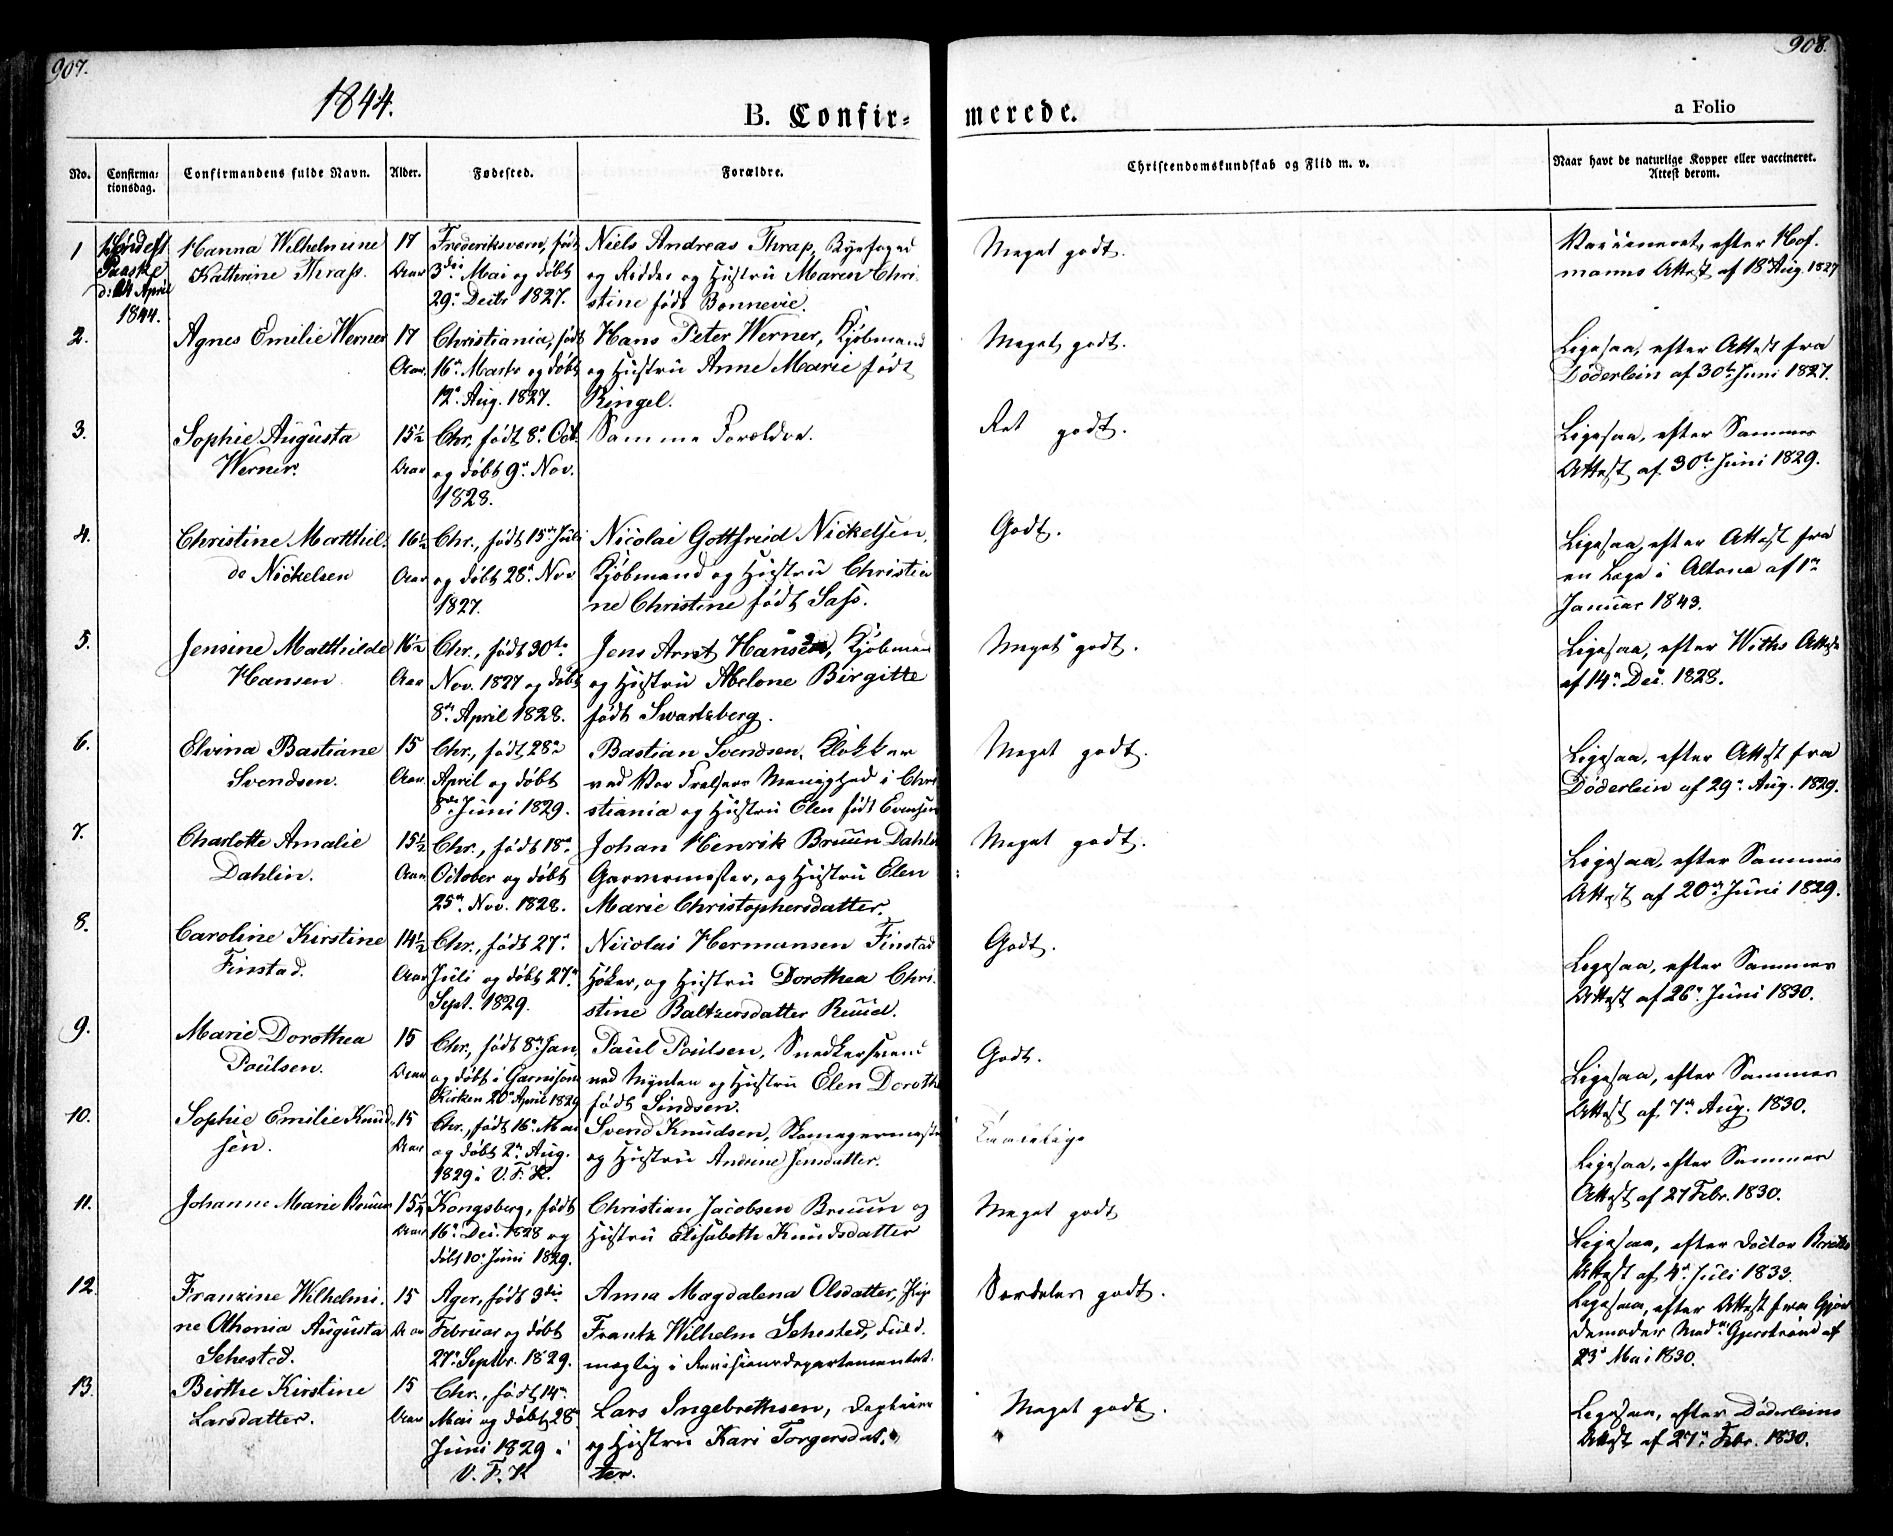 907.
908.
1844.
B. Confir=
merede.
a Folio
No.
Confirma-
tionsdag.
Confirmandens fulde Navn.
Alder.
Fødested.
Forældre.
Christendomskundskab og Flid m. v.
Naar havt de naturlige Kopper eller vaccineret.
Attest derom.
1
Paaske
d: 14 April
1844.
Hanna Wilhelmine
Kathrine Thrap.
17
Aar
Frederiksværn, født
3die Mai og døbt
29. Decbr 1827.
Niels Andreas Thrap, Byefoged
og Ridder og Hustru Maren Chri-
stine født Bonnevie.
Meget godt.
Vaccineret, efter Hof-
manns Attest af 18 Aug. 1827
2.
Agnes Emilie Werner
17
Aar.
Christiania, født
16de Marts og døbt
12te Aug. 1827.
Hans Peter Werner, Kjøbmand
og Hustru Anne Marie født
Ringel.
Meget godt.
Ligesaa, efter Attest fra
Døderlein af 30te Juni 1827.
3.
Sophie Augusta
Werner.
15½
Aar
Chr. født 8de Oct.
og døbt 9de Nov.
1828.
Samme Forældre.
Ret godt.
Ligesaa, efter Sammes
Attest af 30te Juni 1829.
4.
Christine Matthil-
de Nickelsen
16½
Aar
Chr., født 15de Juli
og døbt 28de Nov
1827.
Nicolai Gottfried Nickelsen,
Kjøbmand og Hustru Christia-
ne Christine født Sass.
Godt.
Ligesaa, efter Attest fra
en Læge i Altona af 1ste
Januar 1843.
5.
Jensine Matthilde
Hansen
16½
Aar
Chr., født 30te
Nov. 1827 og døbt
8de April 1828.
Jens Arnt Hansen, Kjøbmand
og Hustru Abelone Birgitte
født Swartzberg.
Meget godt.
Ligesaa, efter Withs Attest
af 14de Dec. 1828.
6.
Elvina Bastiane
Svendsen.
15
Aar.
Chr., født 28de
April og døbt
8de Juni 1829.
Bastian Svendsen, Klokker
ved Vor Frelsers Menighed i Chri-
stiania og Hustru Elen født Evensen
Meget godt.
Ligesaa, efter Attest fra
Døderlein af 29de Aug. 1829.
7.
Charlotte Amalie
Dahlin.
15½
Aar
Chr., født 18de
October og døbt
25de Nov. 1828.
Johan Henrik Bruun Dahlin
Garvermester, og Hustru Elen
Marie Christophersdatter.
Meget godt.
Ligesaa, efter Sammes
Attest af 20de Juni 1829.
8.
Caroline Kirstine
Finstad.
14½
Aar
Chr., født 27de
Juli og døbt 27de
Sept. 1829.
Nicolai Hermansen Finstad
Høker, og Hustru Dorothea Chri-
stine Baltzersdatter Ruud.
Godt.
Ligesaa, efter Sammes
Attest af 26de Juni 1830.
9.
Marie Dorothea
Poulsen.
15
Aar
Chr., født 8de Jan,
og døbt i Garnisons
Kirken 20de April 1829
Paul Poulsen, Snedkersvend
ved Mynten og Hustru Elen Doroth
født Sindsen.
Godt.
Ligesaa, efter Sammes
Attest af 7de Aug. 1830.
10.
Sophie Emilie Knud-
sen.
15
Aar
Chr., født 16de Mai
og døbt 2den Aug.
1829 i V. F. K.
Svend Knudsen, Skomagermester
og Hustru Andrine Jensdatter.
Ligesaa, efter Sammes
Attest af 27 Febr. 1830.
11.
Johanne Marie Bruun
15½
Aar
Kongsberg, født
16de Dec. 1828 og
døbt 10de Juni 1829.
Christian Jacobsen Bruun og
Hustru Elisabeth Knudsdatter
Meget godt
Ligesaa, efter Doctor
Attest af 4de Juli 1833.
12.
Franzine Wilhelmi-
ne Athonia Augusta
Sehested.
15
Aar
Ager, født 3die
Februar og døbt
27de Septbr. 1829.
Anna Magdalena Olsdatter, Pige
Frantz Wilhelm Sehested, Fuld-
mægtig i Revisionsdepartementet.
Særdeles godt.
Ligesaa, efter Attest fra Gjor-
demoder Mad. Gjerstrønd af
23de Mai 1830.
13.
Birthe Kirstine
Larsdatter.
15
Aar
Chr., født 14de
Mai og døbt 28de
Juni 1829 i
V. F. K
Lars Ingebrethsen,
og Hustru Kari Torgersdat-
ter.
Meget godt.
Ligesaa, efter Døderleins
Attest af 27de Febr. 1830.